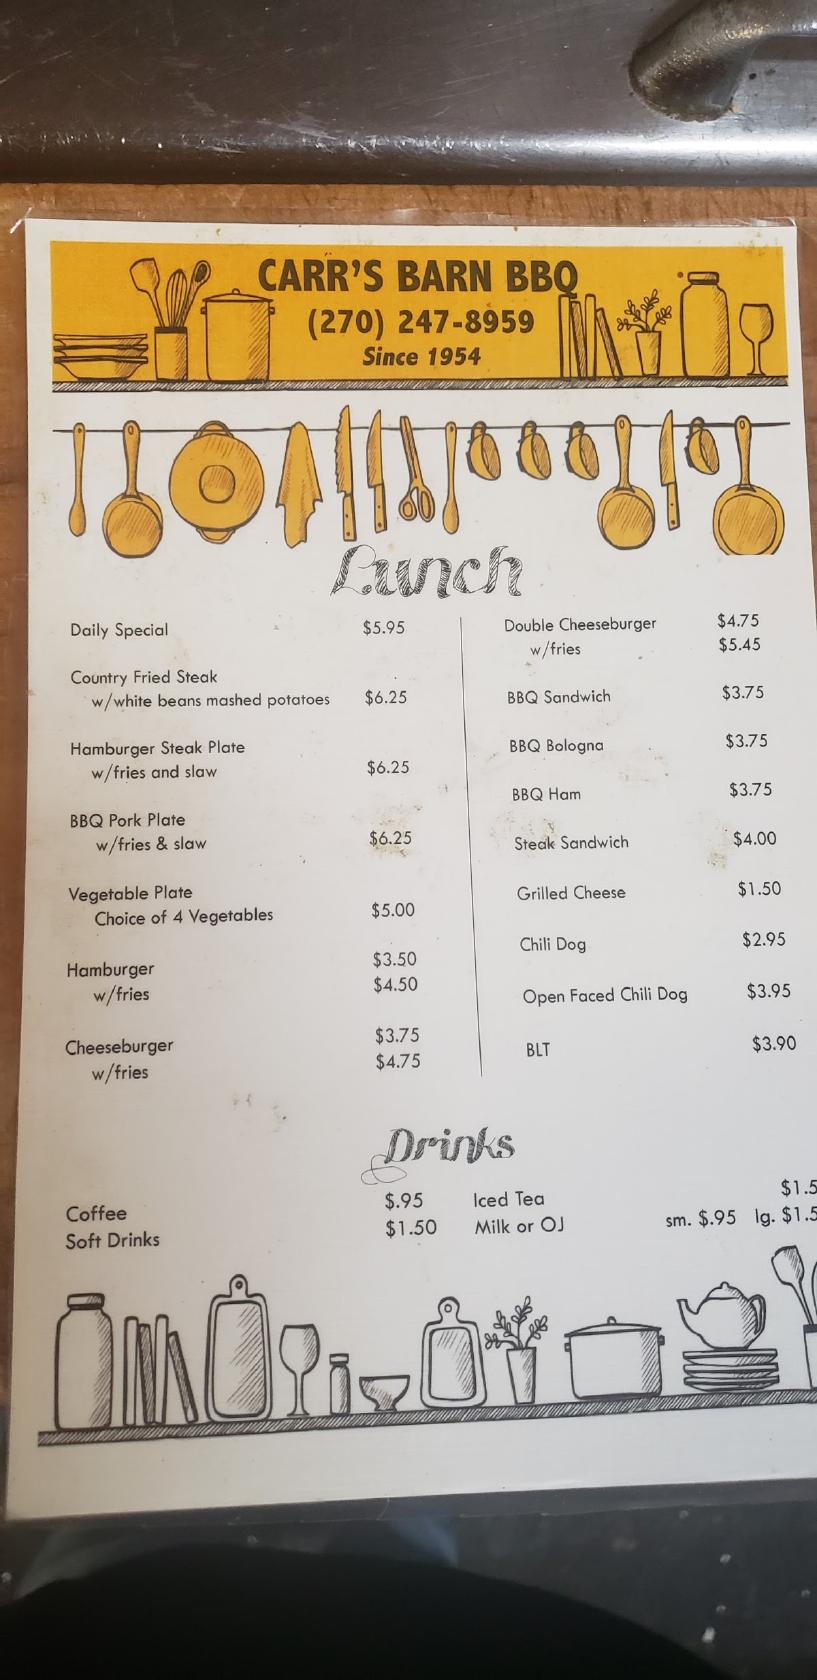 CARR'S BARN BBQ
(270) 247-8959
Since 1954
Lunch
Daily Special $5.95
Country Fried Steak
w/white beans mashed potatoes $6.25
Hamburger Steak Plate
w/fries and slaw $6.25
BBQ Pork Plate
w/fries & slaw $6.25
Vegetable Plate
Choice of 4 Vegetables $5.00
Hamburger $3.50
w/fries $4.50
Cheeseburger $3.75
w/fries $4.75
Double Cheeseburger $4.75
w/fries $5.45
BBQ Sandwich $3.75
BBQ Bologna $3.75
BBQ Ham $3.75
Steak Sandwich $4.00
Grilled Cheese $1.50
Chili Dog $2.95
Open Faced Chili Dog $3.95
BLT $3.90
Drinks
Coffee $.95
Soft Drinks $1.50
Iced Tea
Milk or OJ sm. $.95 lg.